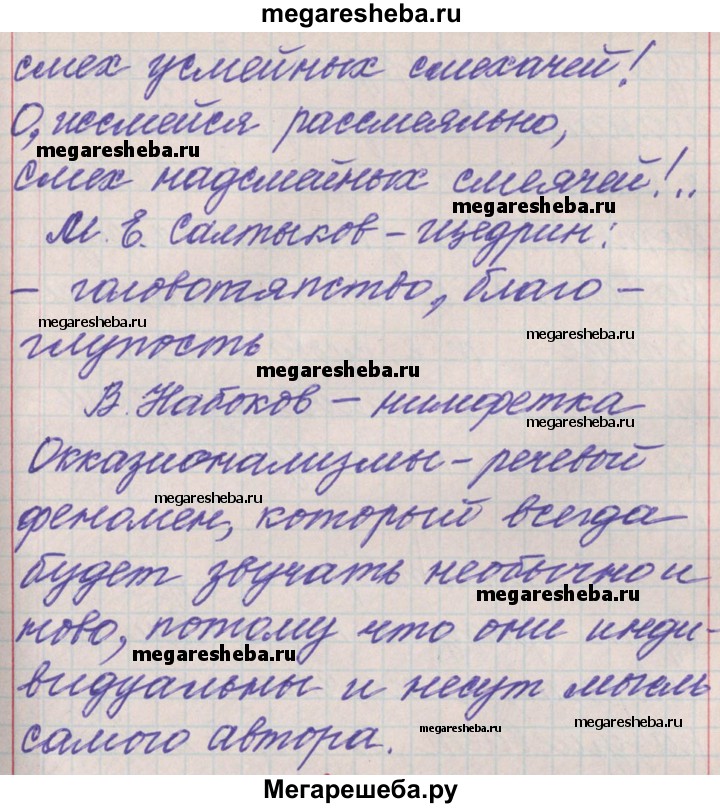 megaresheba.ru
смех усмейных смехачей!
О, иссмейся рассмеяльно,
megaresheba.ru
смех надсмейных смеячей!..
megaresheba.ru
М. Е. Салтыков-Щедрин:
- головотяпство, благо-
megaresheba.ru
megaresheba.ru
глупость
megaresheba.ru
В. Набоков - нимфетка
megaresheba.ru
Окказионализмы - речевый
megaresheba.ru
феномен, который всегда
будет звучать необычно и
megaresheba.ru
ново, потому что они инди-
megaresheba.ru
видуальны и несут мысль
megaresheba.ru
megaresheba.ru
самого автора.
Мегарешеба.ру